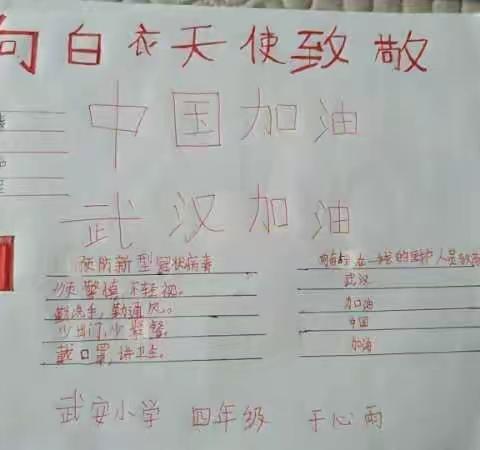 向白衣天使致敬
中国加油
武汉加油
预防新型冠状病毒
须警慎,不轻视。
勤洗手,勤通风。
少出门,少聚餐。
戴口罩,讲卫生。
在一线的医护人员致敬
武汉
加油
中国
加油
武安小学 四年级 于心雨